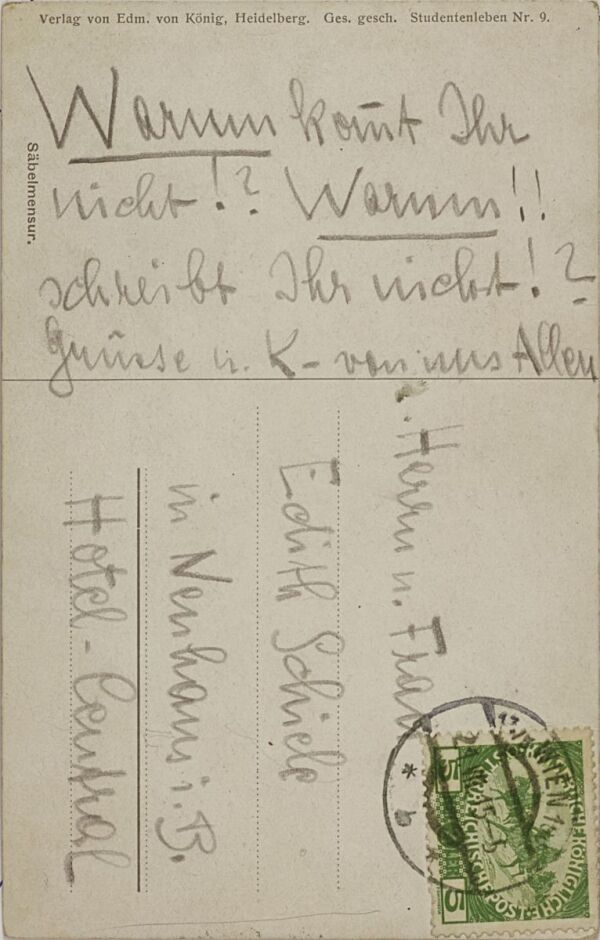 Verlag von Edm. von König, Heidelberg. Ges. gesch. Studentenleben Nr. 9.
Säbelmensur.
Warum kom̄t Ihr
nicht!? Warum!!
schreibt Ihr nicht!?
Grüsse u. K- von uns Allen
Herrn u. Frau
Edith Schiele
in Neuhaus i. B.
Hotel-Central
WIEN
b
5 5